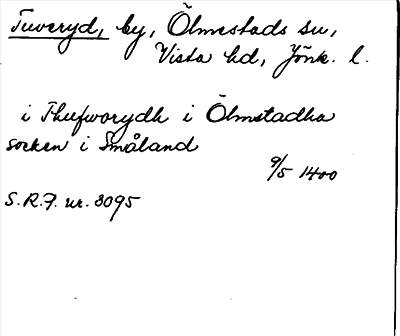 Tuveryd, by, Ölmestads sn,
Vista hd, Jönk. l.
i Thufworydh i Ölmstadha
socken i Småland
9/5 1400
S.R.P. nr. 3095